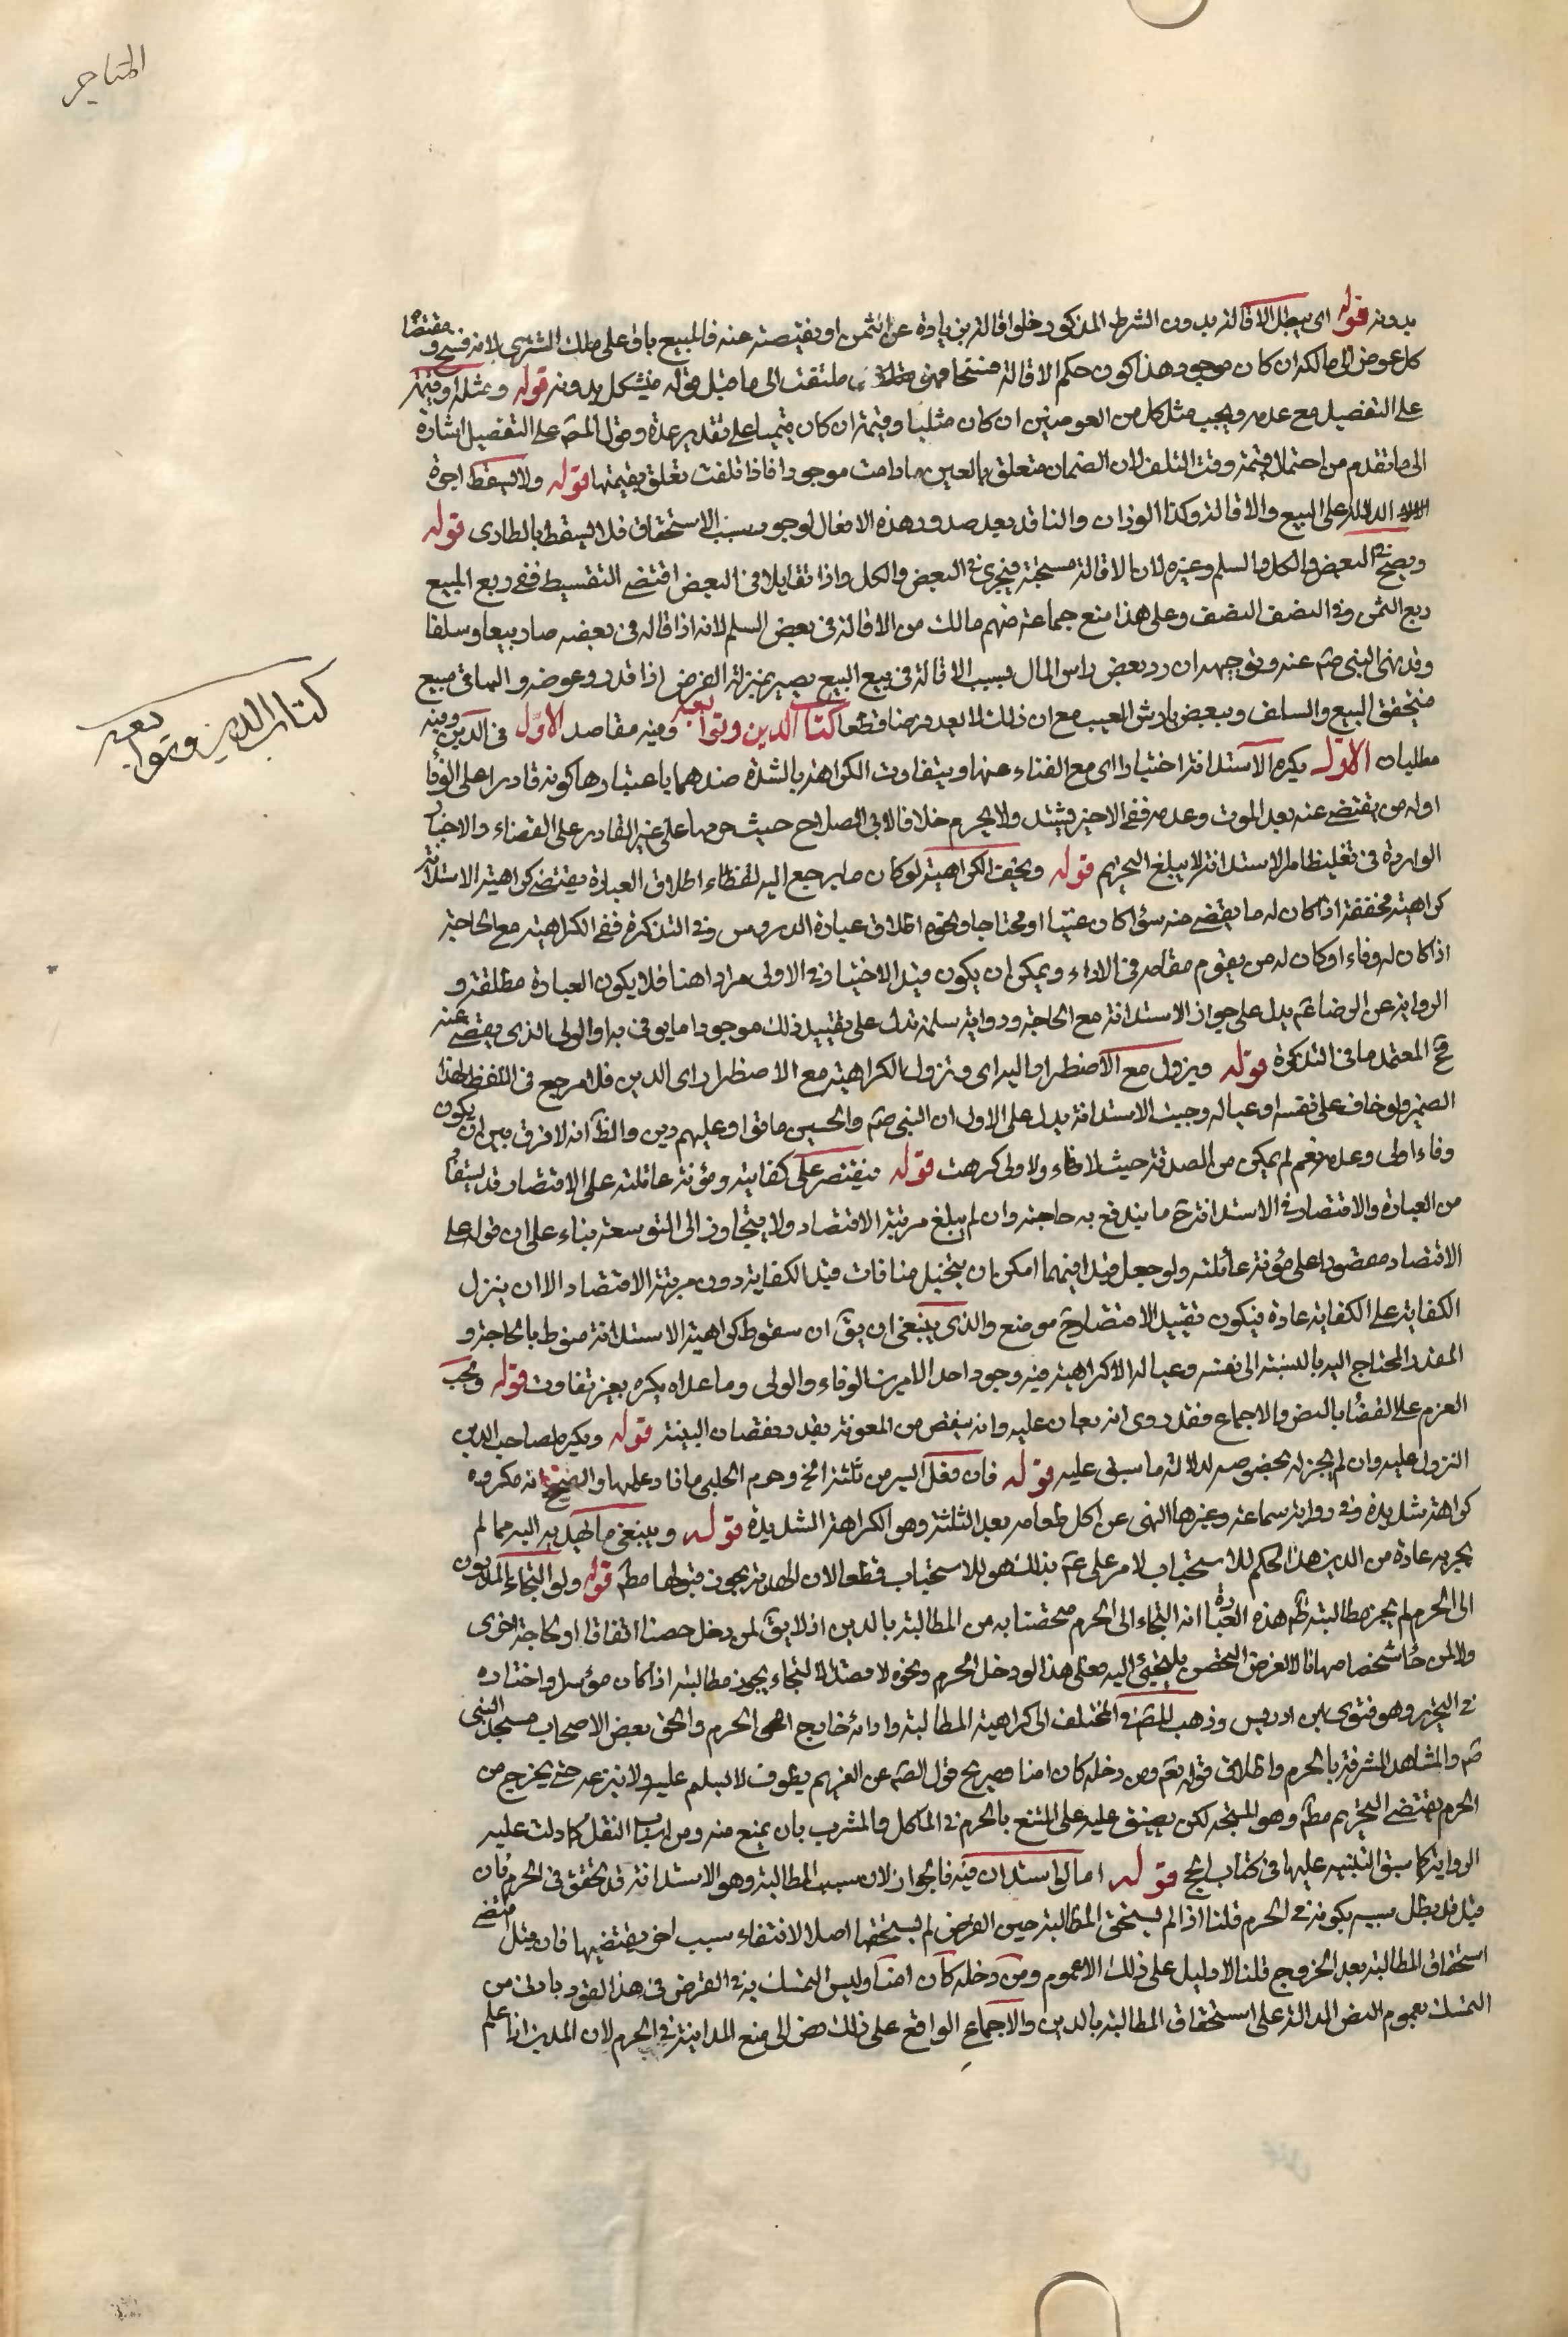 المتاجر
بدونه قوله اى يبطل الاقالة بدون الشرط المذكور فلو اقاله بزيادة عن الثمن او نقيصته عنه فالمبيع باق على ملك المشترى لانه فسخ ومقتضاه
كل عوض الى مالكه ان كان موجودا هذا كون حكم الاقالة ملتفت الى ما قبل قوله فيشكل بدونه قوله ومثله او قيمته
على التفصيل مع عدمه ويجب مثل كل من العوضين ان كان مثليا وقيمته ان كان قيميا على تقدير عدمه وقول المص على التفصيل اشارة
الى ما تقدم من احتمال قيمته وقت التلف لان الضمان متعلق بالعين ما دامت موجودة فاذا تلفت تعلق بقيمتها قوله ولا يسقط اجرة
الدلال على البيع والاقالة وكذا الوزان والناقد بعد صدور هذه الافعال لوجود سبب الاستحقاق فلا يسقط بالطارى قوله
ويصح فى البعض والكل والسلم وغيره لان الاقالة مستحبة فيجرى فى البعض والكل واذا تقايلا فى البعض اقتضى التقسيط ففى ربع المبيع
ربع الثمن وفى النصف النصف وعلى هذا منع جماعة منهم مالك من الاقالة فى بعض السلم لانه اذا قاله فى بعضه صار بيعا وسلفا
وقد نهى النبى صم عنه وتوجيهه ان رد بعض راس المال بسبب الاقالة فى بيع البيع يصير بمنزلة القرض اذا قد رد عوضه والباقى مبيع
فتحقق البيع والسلف وببعض بارش العيب مع ان ذلك لا يعد قرضا قطعا كتاب الدين وتوابعه وفيه مقاصد الاول فى الدين وفيه
مطلبان الاول يكره الاستدانة اختيارا اى مع الغناء عنها ويتفاوت الكراهة بالشدة وضدها باعتبارها كونه قادرا على الوفا
او له من يقتضى عنه بعد الموت وعدمه ففى الاخير يشتد ولا يحرم خلافا لابى الصلاح حيث حرمها على غير القادر على القضاء والاخبار
الواردة فى تغليظ امر الاستدانة لا يبلغ التحريم قوله ويخف الكراهية لو كان ما يرجع اليه لقضاء اطلاق العبارة يقتضى كراهية الاستدانة
كراهية مخففة اذا كان له ما يقضى منه سواء كان غنيا او محتاجا ونحوه اطلاق عبارة الدروس وفى التذكرة نفى الكراهية مع الحاجة
اذا كان له وفاء او كان له من يقوم مقامه فى الاداء ويمكن ان يكون قيد الاختيار فى الاولى مرادا هنا فلا يكون العبارة مطلقة و
الرواية عن الرضا عم يدل على جواز الاستدانة مع الحاجة ورواية سلمة تدل على تقييد ذلك موجودا ما يوفى به او الولى الذى يقضى عنه
فح المعتمد ما فى التذكرة قوله ويزول مع الاضطرار اليه اى وتزول الكراهية مع الاضطرار اى الدين فلا مرجع فى اللفظ لهذا
الضمير ولو خاف على نفسه او عياله وجبت الاستدانة يدل على الاول ان النبى صم والحسين ماتوا وعليهم دين والظ انه لا فرق بين ان يكون
وفاء اولى وعدمه نعم لم يمكن من الصدقة حيث لا وفاء ولا ولى كرهت قوله فيقتصر على كفايته ومؤنة عائلته على الاقتصاد قد يستفاد
من العبارة والاقتصاد فى الاستدانة ح ما يندفع به حاجته وان لم يبلغ مرتبة الاقتصاد ولا يتجاوز الى التوسعة بناء على ان قوله على
الاقتصاد مقصورا على مؤنة عائلته ولو جعل قيدا فيهما امكن ان يتخيل منافات قيد الكفاية دون مرتبة الاقتصاد الا ان ينزل
الكفاية على الكفاية عادة فيكون تقييد الاقتصاد فى موضع والذى ينبغى ان يق ان سقوط كراهية الاستدانة منوط بالحاجة و
المقدر المحتاج اليه بالنسبة الى نفسه وعياله لا كراهية فيه وجود احد الامرين الوفاء والولى وما عداه يكره بغير تفاوت قوله ويجب
العزم على القضا بالنص والاجماع فقد روى انه يعان عليه وانه ينقص من المعونة بقدر نقصان النية قوله ويكره لصاحب الدين
النزول عليه وان لم يجز له بخصوصه لدلالة ما سبق عليه قوله فان فعل اليه من ثلثة الخ وحرم الحلبى ما زاد عليها والصحيح انه مكروه
كراهة شديدة وفى رواية سماعة وغيرها النهى عن اكل طعامه بعد الثلثة وهو الكراهة الشديدة قوله وينبغى ما يهديه اليه مما لم
يجر به عادة من الدين هذا الحكم للاستحباب لامر على عم بذلك هو للاستحباب قطعا لان الهدية يجوز قبولها مط قوله ولو التجاء المديون
الى الحرم لم يجز مطالبته ظ هذه العبارة انه التجاء الى الحرم متحصنا به من المطالبة بالدين اذ لا يق لمن دخل حصنا اتفاقا او لحاجة اخرى
التجئ اليه فعلى هذا لو دخل الحرم ونحوه لا قصد الالتجاء يجوز مطالبته اذا كان مؤسرا واختاره
فى التحرير وهو فتوى ابن ادريس وذهب المص فى المختلف الى كراهية المطالبة واداؤه خارج الحرم والحق بعض الاصحاب مسجد النبى
صم والمشاهد المشرفة بالحرم واطلاق قوله تعم ومن دخله كان امنا وصريح قول الصم عن الغريم يطوف لا يسلم عليه ولا يترعه حتى يخرج من
الحرم يقتضى التحريم مط وهو المتجه لكن يضيق عليه على الممتنع بالحرم فى الماكل والمشرب بان يمنع منه ومن اسباب النقل كما دلت عليه
الرواية كما سبق التنبيه عليها فى كتاب الحج قوله اما لو استدان فيه فالجواز لان سبب المطالبة وهو الاستدانة قد تحقق فى الحرم فان
قيل قد بطل سببه بكونه فى الحرم قلنا اذا لم يستحق المطالبة حين القرض لم يستحقها اصلا لانتفاء سبب اخر يقتضيها فان قيل اقتضى
استحقاق المطالبة بعد الخروج قلنا لا دليل على ذلك الا عموم ومن دخله كان امنا وليس التمسك به فى القرض فى هذا الفرد باولى من
التمسك بعموم النص الدالة على استحقاق المطالبة بالدين والاجماع الواقع على ذلك مض الى منع المداينة فى الحرم لان المدين اذا علم
كتاب الدين وتوابعه